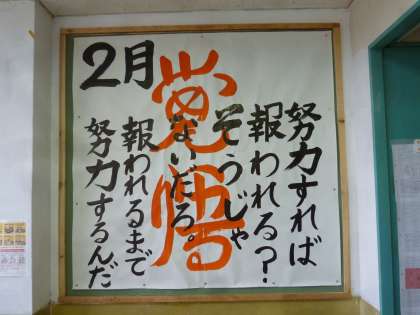 2月
覚悟
努力すれば
報われる?
そうじゃ
ないだろ。
報われるまで
努力するんだ